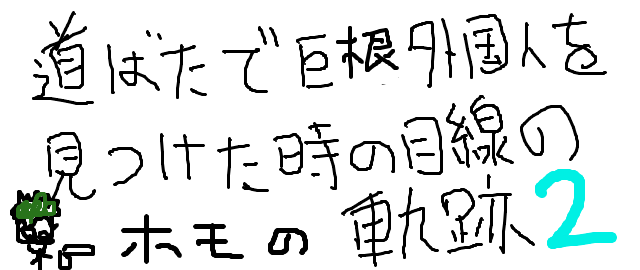 道ばたで巨根外国人を
見つけた時の目線の
ホモの軌跡2